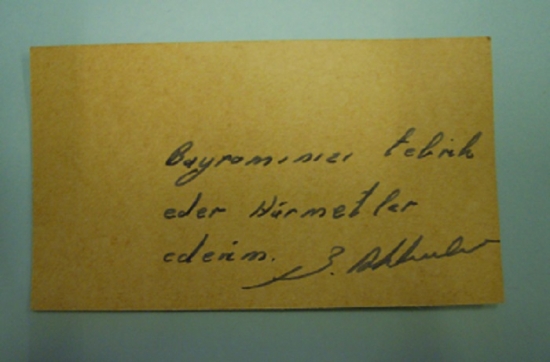 Bayramınızı tebrik
eder Hürmetler
ederim.